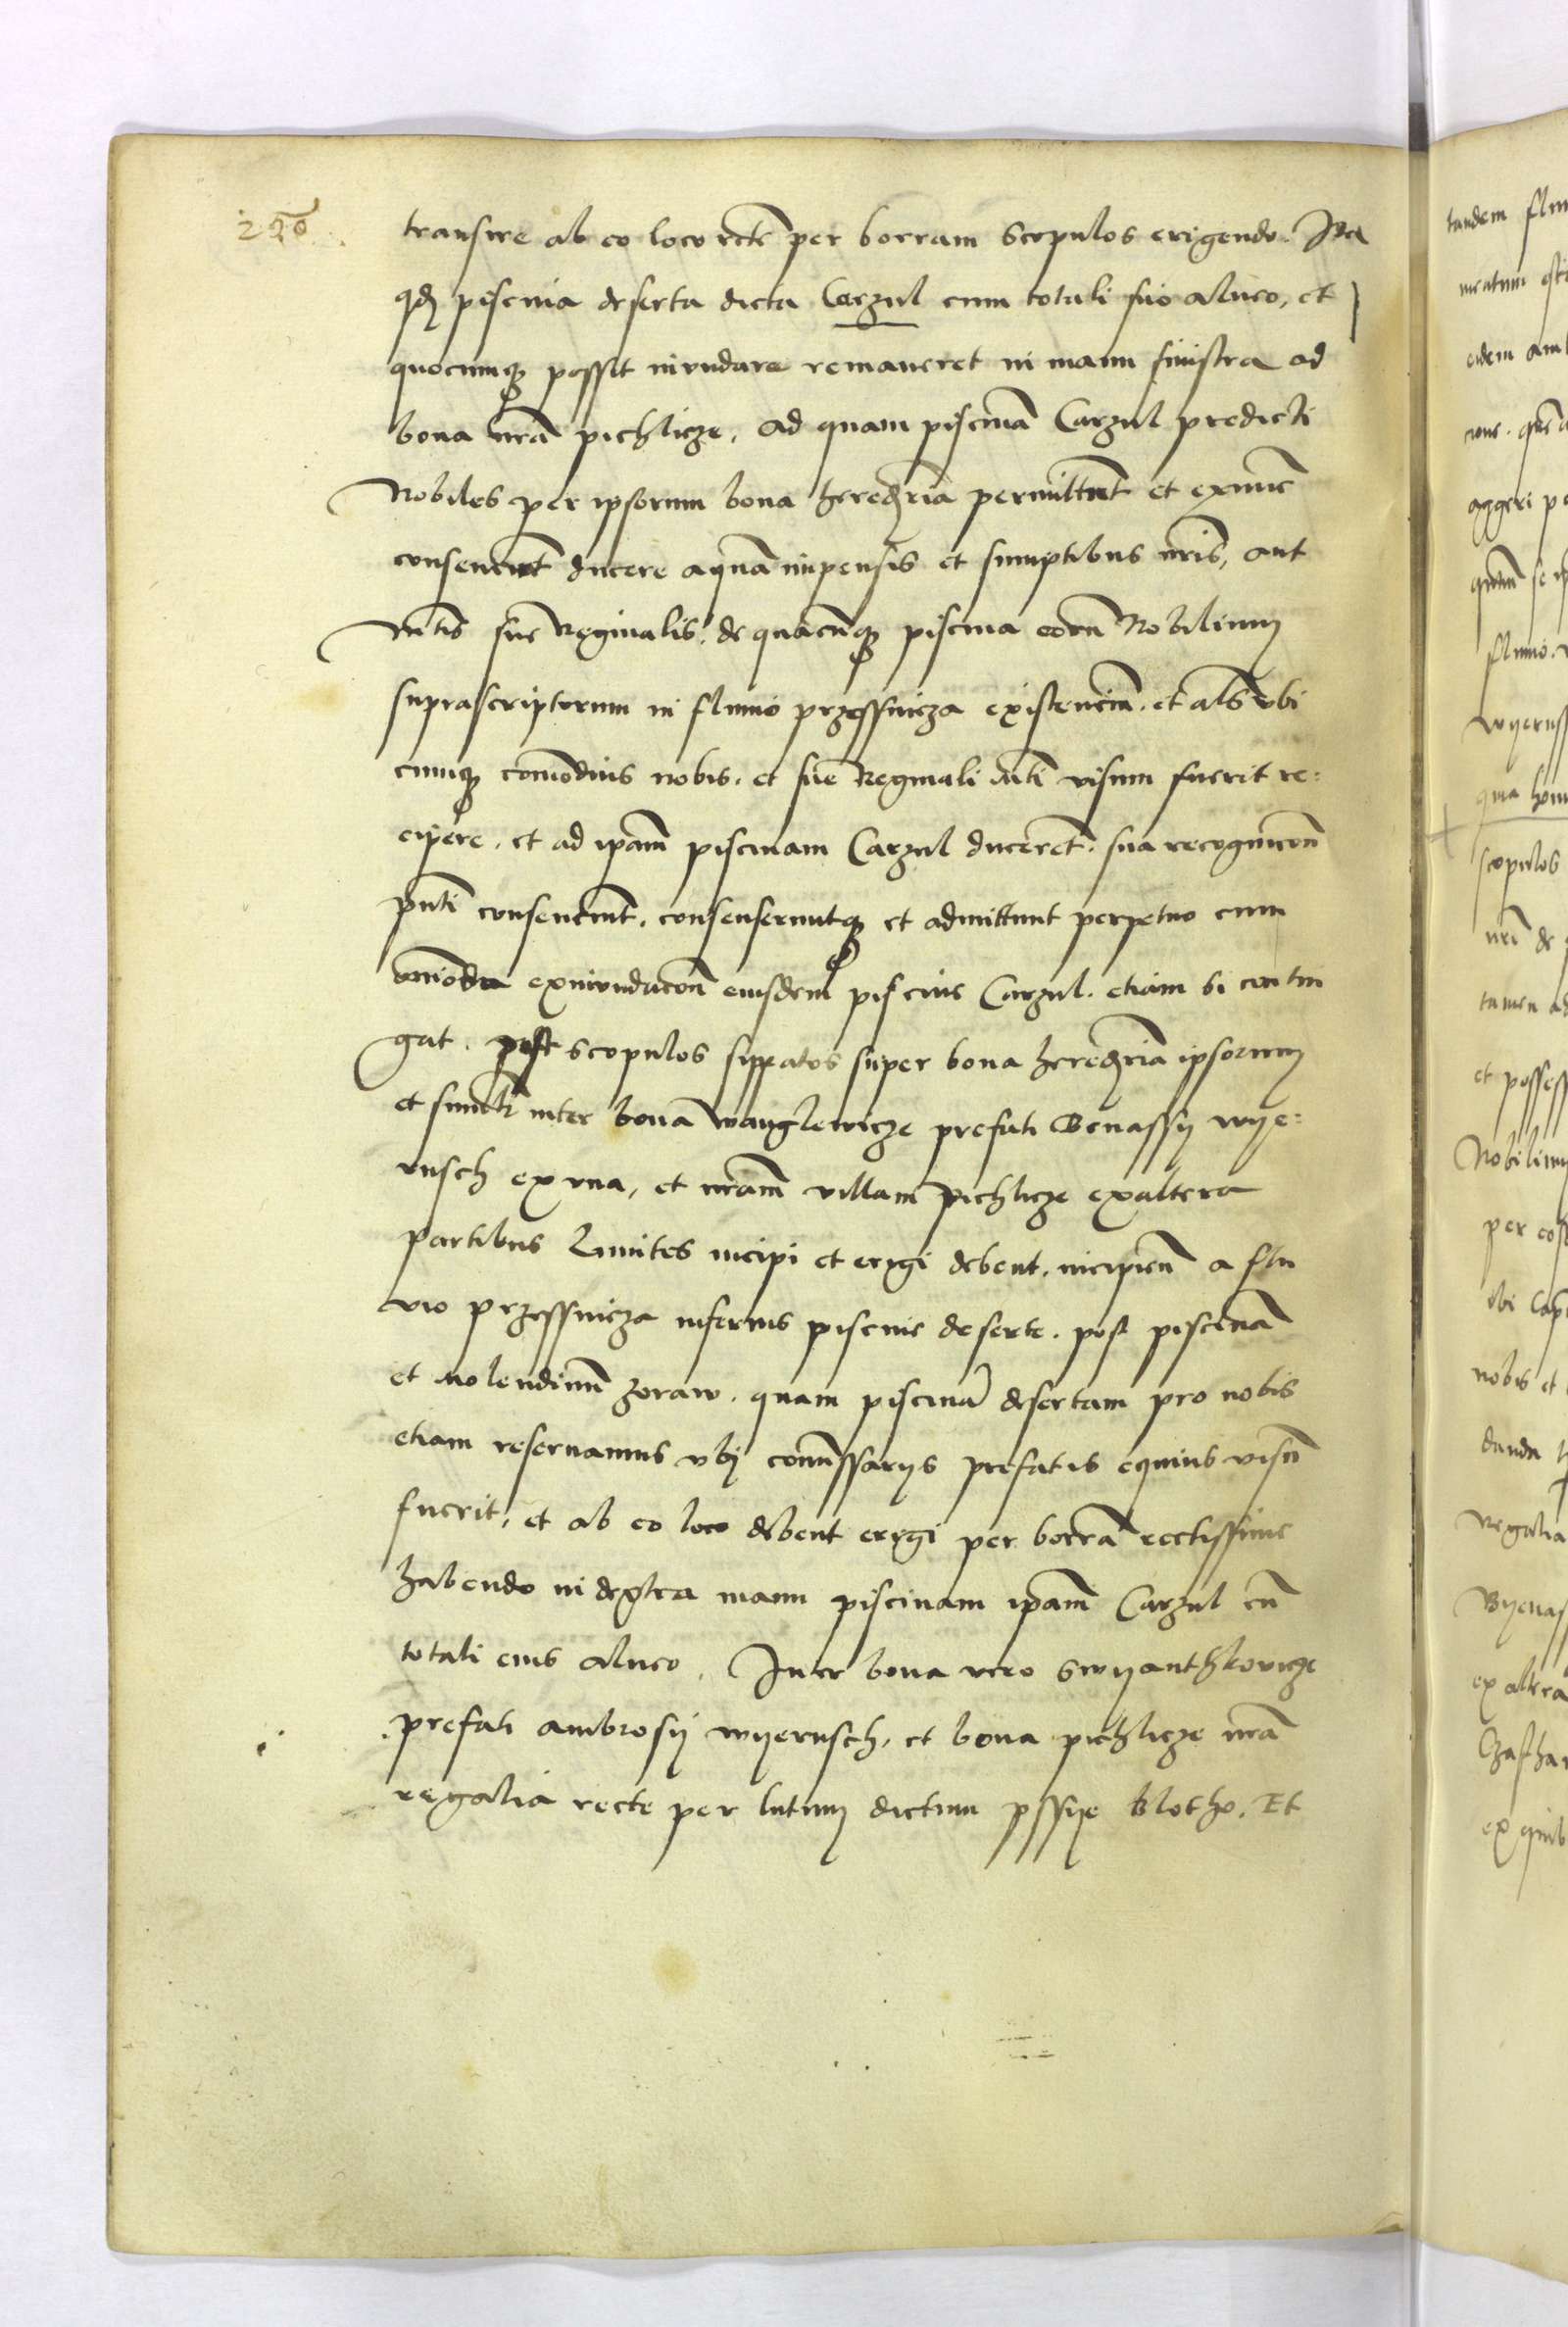 220
transire ab eo loco recte per borram scopulos erigendo. Ita
qd piscina deserta dicta Carzul cum totali suo alueo, et
quocumq possit inundare remaneret in manu sinistra ad
bona nra pichlicze. ad quam piscina Carzul predicti
Nobiles per ipsorum bona heredria permittunt et exnunc
consenciunt ducere aqua impensis et sumptibus nris, aut
Mtis sue Reginalis. de quacuq piscina eoru Nobilium
suprascriptorum in fluuio przessnicza existencium. et als vbi
cumq comodius nobis. et sue Reginali Mti visum fuerit re:
cipere. et ad ipam piscinam Carzul duceret. sua recognicon
pnti consenciunt. consenseruntq et admittunt perpetuo cum
omoda exinundacon eiusdem piscine Carzul. etiam si contin
gat. post scopulos sippatos super bona heredria ipsorum
et similr inter bona wanglewicze prefati Benassij wije:
rusch ex vna, et nram villam pichlicze ex altera
partibus Limites incipi et erigi debent. incipien a flu
vio przessnicza inferius piscine deserte. post piscina
et Molendinu zoraw. quam piscina desertam pro nobis
etiam reseruamus vbj comissarijs prefatis equius visu
fuerit, et ab eo loco debent erigi per borra rectissime
habendo in dextra manu piscinam ipam Carzul cu
totali eius alueo. Inter bona vero Swyanthkovicze
prefati ambrosij wijerusch, et bona pichlicze nra
regalia recte per lutum dictum pssije Blotho. Et
tandem flu
meatum
eidem am
aggeri p
fluuio.
wijeruss
qua
scopulos
nri de
tamen ad
et possess
Nobilium
per
ibi
nobis et
danda
Regalia
Bijenas
ex altera
ex quib